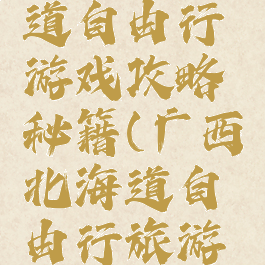 道自由行
游戏攻略
秘籍(广西
北海道自
由行旅游